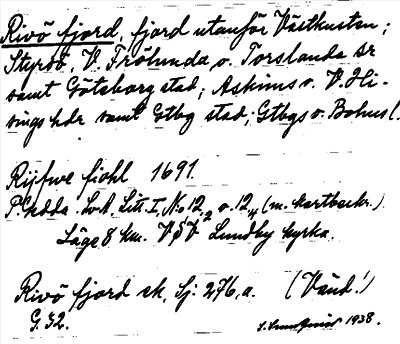 Rivö fjord, fjord utanför Västkusten;
Styrsö, V. Frölunda o. Torslanda sr
samt Göteborg stad; Askims o. V. Hi-
sings hdr samt Gtbg stad; Gtbgs o. Bohus l.
Rijfwe fiohl 1691.
P. Gedda. LoA, Litt. I, No 12,2 o. 12,4 (m. kartbeskr.)
Läge 8 km. VSV Lundby kyrka.
Rivö fjord sk, Sj: 276, a. (Vänd!)
G. 32. 1938.